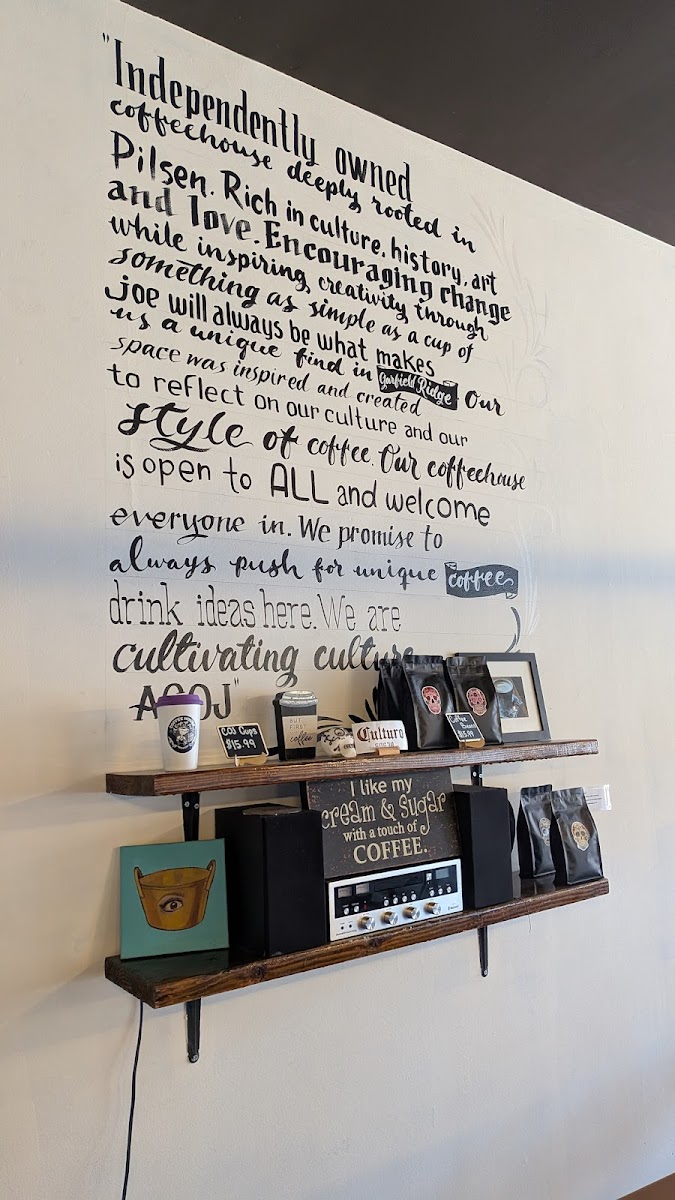 "Independently owned
coffeehouse deeply rooted in
Pilsen. Rich in culture, history, art
and love. Encouraging change
while inspiring creativity through
something as simple as a cup of
joe will always be what makes
us a unique find in Garfield Ridge. Our
space was inspired and created
to reflect on our culture and our
style of coffee. Our coffeehouse
is open to ALL and welcome
everyone in. We promise to
always push for unique coffee
drink ideas here. We are
cultivating culture
ACOJ"
COJ Cups
$15.99
BUT FIRST
coffee
Culturo
Coffee
Beans
$15.99
I like my
cream & Sugar
with a touch of
COFFEE.